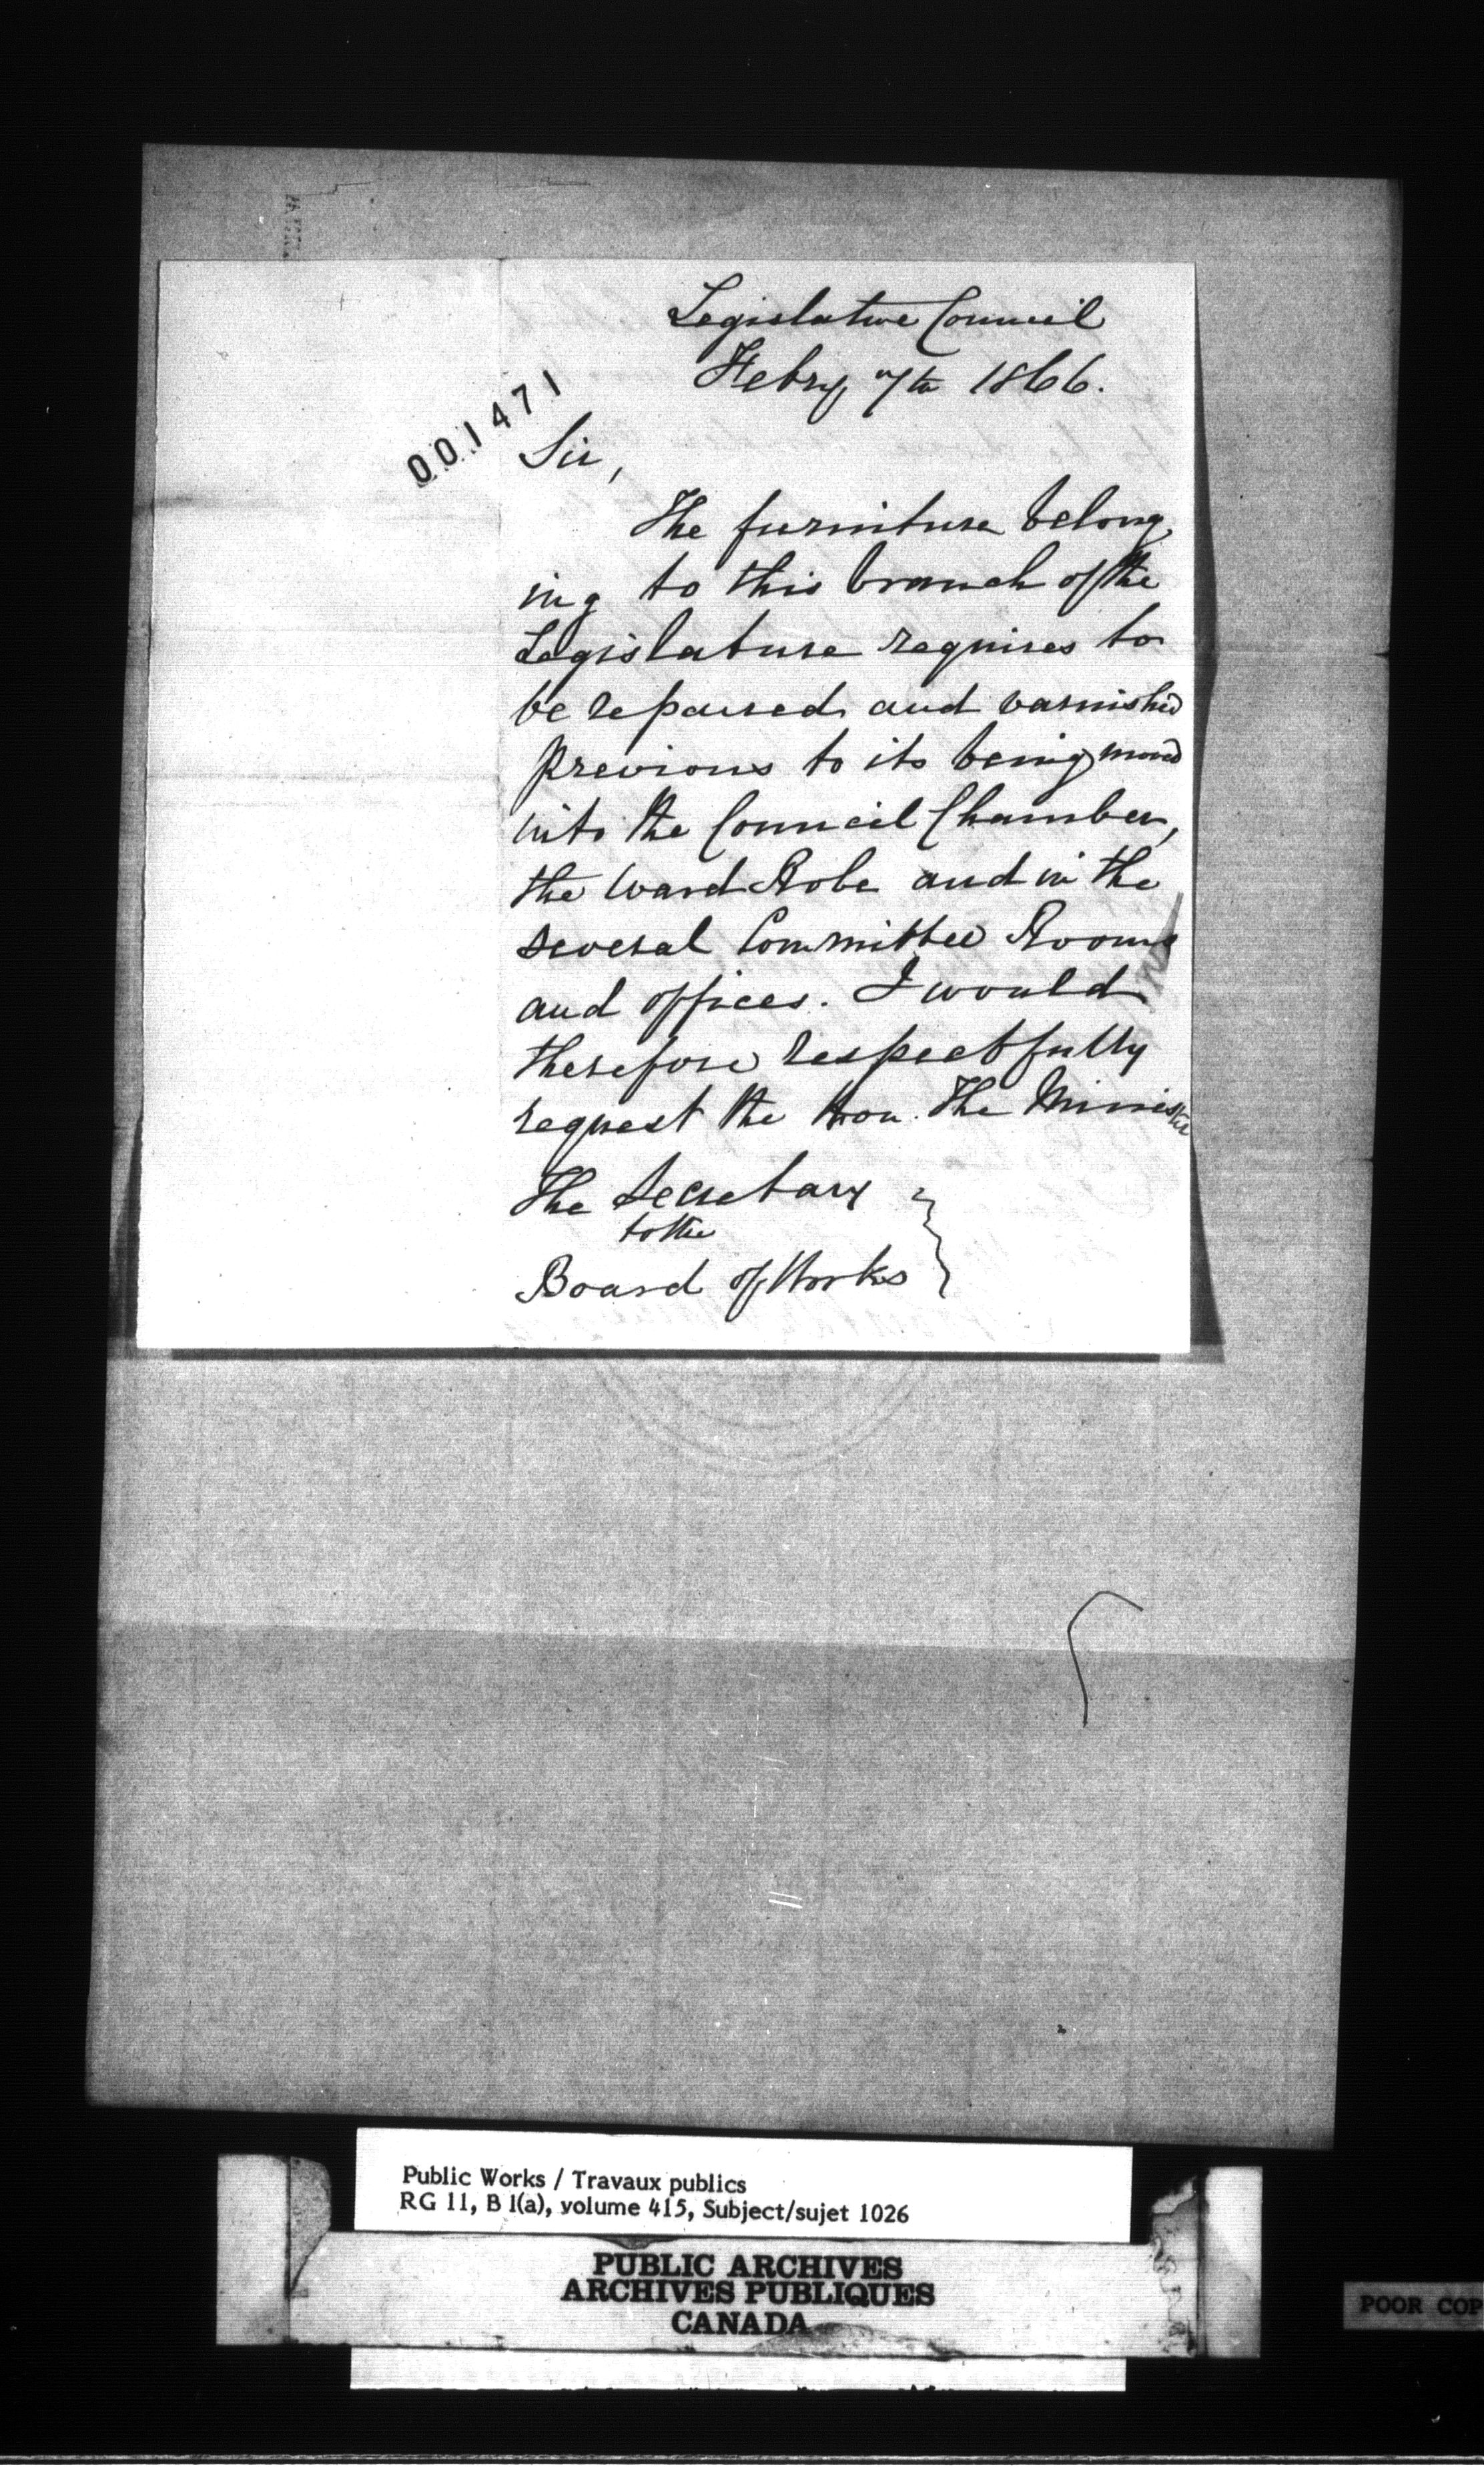 Legislative Council
Febry 7th 1866.
001471
Sir,
The furniture belong
ing to this branch of the
Legislature requires to
be repaired and varnished
previous to its being moved
into the Council Chamber,
the Ward Robe and in the
several Committee Rooms
and offices. I would
therefore respectfully
request the Hon. The Minister
The Secretary
to the
Board of Works
Public Works / Travaux publics
RG 11, B 1(a), volume 415, Subject/sujet 1026
PUBLIC ARCHIVES
ARCHIVES PUBLIQUES
CANADA
POOR COP